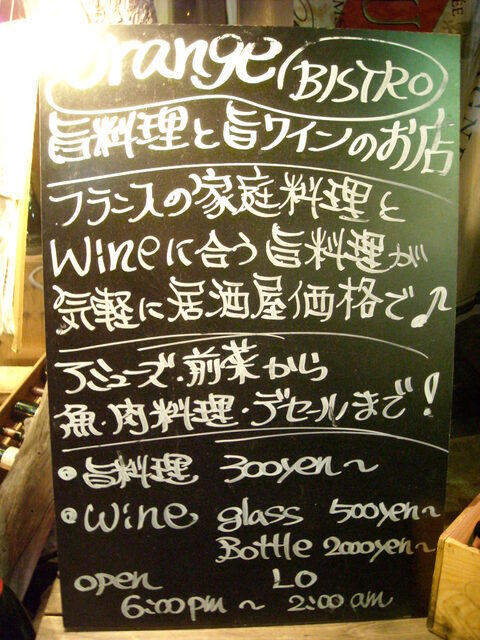 Orange BISTRO
旨料理と旨ワインのお店
フランスの家庭料理と
Wineに合う旨料理が
気軽に居酒屋価格で♪
アミューズ・前菜から
魚・肉料理・デセールまで!
• 旨料理 300yen〜
• Wine glass 500yen〜
Bottle 2000yen〜
open LO
6:00pm 〜 2:00am